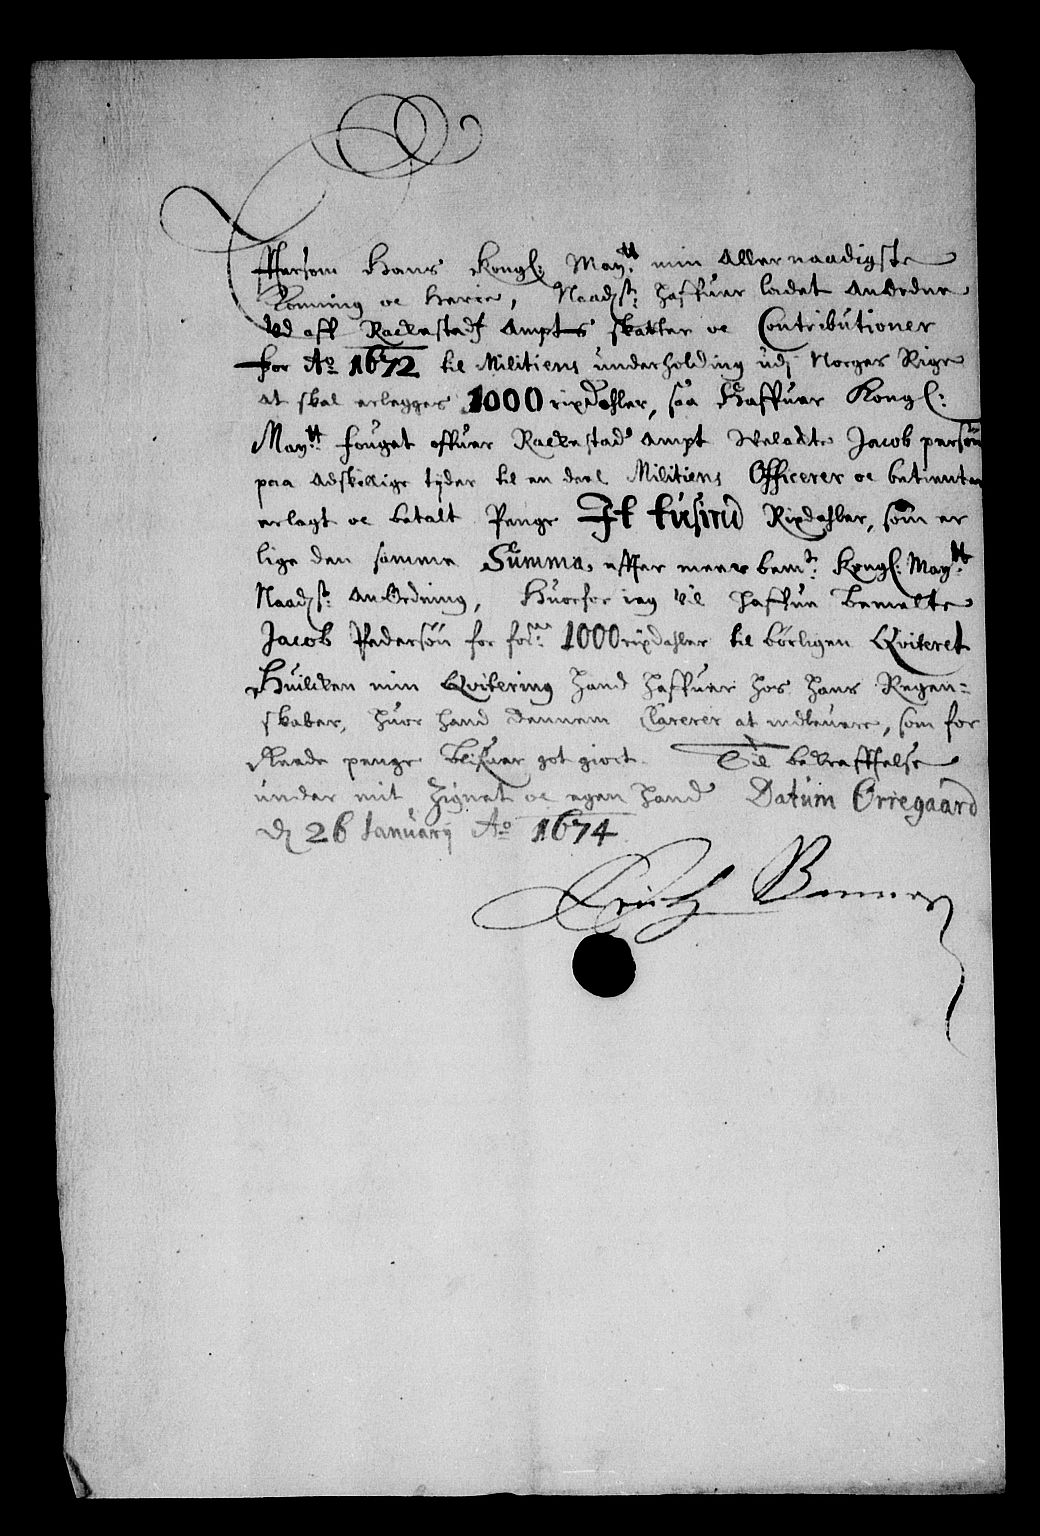 Efftersom Hans Kongl: May:tt min Allernaadigste
Konning oc Herre, Naad:st: haffuer ladet Anordne
Ud aff Rackestadz Ampts skatter oc Contributioner
for Ao 1672 til Militiens underholding udj Norges Rige
at skal erlegges 1000 rixDahler, saa Haffuer Kongl:
May:tts fouget offuer Rackestads Ampt Welackte Jacob persøn
paa Adskellige tyder til en deel Militiens Officerer oc betienter
erlagt oc betalt Penge Et tusind Rixdahler, som er
lige den samme Summa, effter meer bem:te Kongl: May:tts
Naad:st: Anordning, Huorfor ieg vil haffue Bemelte
Jacob Pedersøn for for:ne 1000 rixdahler til børligen Qviteret
Huilcken min Qvitering hand haffuer hos hans Regen-
skaber, huor hand dennem Clarerer at indleuere, som for
Reede penge bliffuer got giort. Til bekrefftelse
under mit Zignet oc egen hand Datum Ørregaard
d 26 Januarij Ao 1674